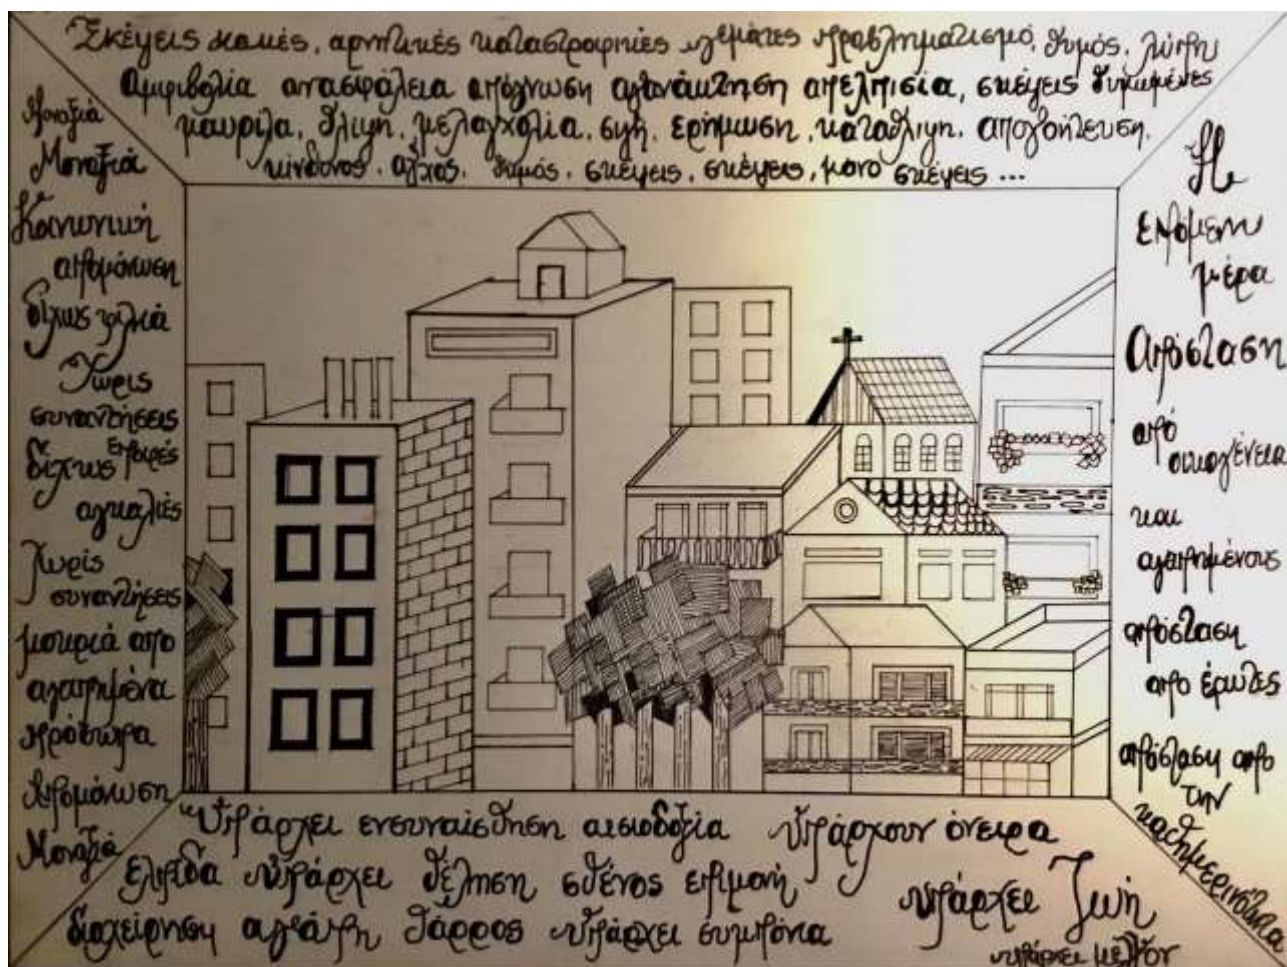 Σκέψεις κακές, αρνητικές καταστροφικές γεμάτες προβληματισμό, θυμός, λύπη
Αμφιβολία ανασφάλεια απόγνωση αγανάκτηση απελπισία, σκέψεις θυμωμένες
μαυρίλα, θλίψη, μελαγχολία, σιγή, ερήμωση, κατάθλιψη, απογοήτευση,
κίνδυνος, άγχος, θυμός, σκέψεις, σκέψεις, μόνο σκέψεις ...
Μοναξιά
Μοναξιά
Κοινωνική
απομόνωση
δίχως φιλιά
Χωρίς
συναντήσεις
δίχως
αγκαλιές
Χωρίς
συναντήσεις
μακριά από
αγαπημένα
πρόσωπα
Απομόνωση
Μοναξιά
Η
επόμενη
μέρα
Απόσταση
από
οικογένεια
και
αγαπημένους
απόσταση
από έρωτες
απόσταση από
την
καθημερινότητα
Υπάρχει ενσυναίσθηση αισιοδοξία Υπάρχουν όνειρα
ελπίδα Υπάρχει θέληση σθένος επιμονή
υπάρχει Ζωή
διαχείρηση αγάπη θάρρος Υπάρχει συμπόνια
υπάρχει μέλλον